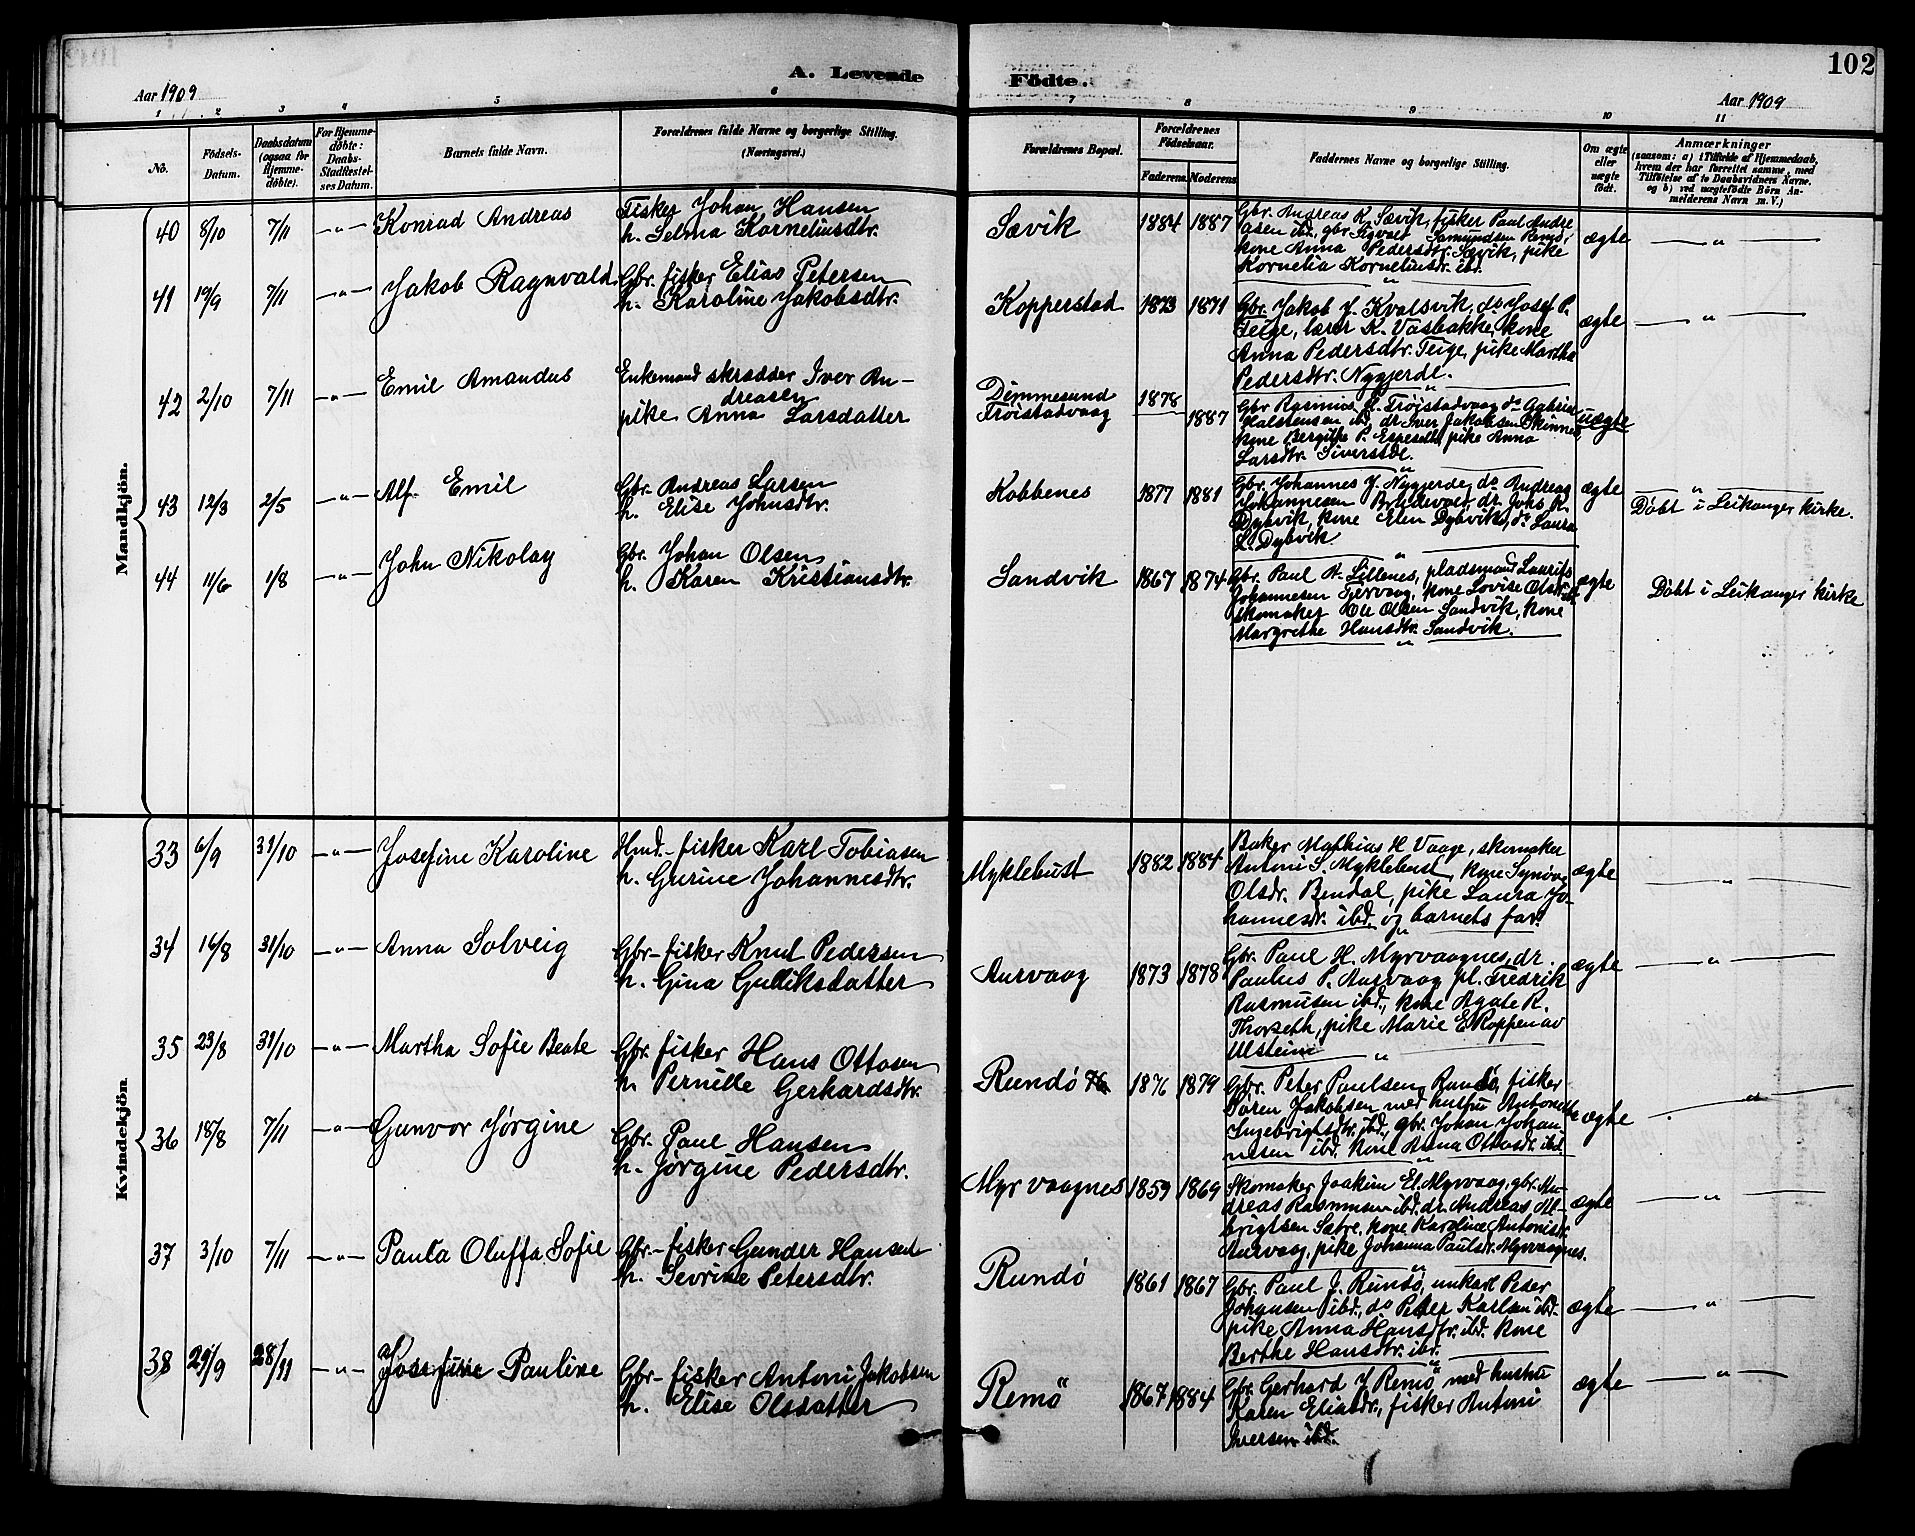 102
A. Levende Födte.
Aar 1909
Aar 1909
1 2 3 4 5 6 7 8 9 10 11
No.
Födsels-Datum.
Daabsdatum (ogsaa for Hjemme-døbte).
For Hjemme-døbte: Daabs-Stadfæstel-ses Datum.
Barnets fulde Navn.
Forældrenes fulde Navne og borgerlige Stilling. (Næringsvei.)
Forældrenes Bopæl.
Forældrenes Födselsaar.
Faderens. Moderens.
Faddernes Navne og borgerlige Stilling.
Om ægte eller uægte født.
Anmærkninger
(saasom: a) i Tilfælde af Hjemmedaab,
hvem der har forrettet samme, med
Tilføielse af to Daabsvidners Navne,
og b) ved uægtefödte Börn An-
melderens Navn m. V.)
Mandkjön.
40 8/10 7/11 —"— Konrad Andreas
Fisker Johan Hansen
h. Selma Korneliusdtr.
Sævik 1884 1887
Gbr. Andreas K. Sævik, fisker Paul Andre
asen ibd., gbr. Sigvalt Samundsen Remö,
kone Anna Pedersdtr. Sævik, pike
Kornelia Korneliusdr. ibd.
ægte — " —
41 19/9 7/11 —"— Jakob Ragnvald
Gbr. fisker Elias Petersen
h. Karoline Jakobsdtr.
Kopperstad 1873 1871
Gbr. Jakob J. Kvalsvik, do Josef P.
Teige, lærer K. Vasbakke, kone
Anna Pedersdtr. Teige, pike Martha
Pedersdtr. Nygjerde.
ægte — " —
42 2/10 7/11 —"— Emil Amandus
Enkemand skrædder Iver An-
dreasen
pike Anna Larsdatter
Dimmesund 1878
Tröistadvaag 1887
Gbr Rasmus Tröistadvaag do Gabriel
Karstensen ibd, dr. Iver Jakobsen Skinnes,
kone Bergithe P. Espeseth, pike Anna
Larsdtr. Siverstöl.
uægte
43 12/3 2/5 —"— Alf Emil
Gbr. Andreas Larsen
h. Elise Johnsdtr.
Kobbenes 1877 1881
Gbr. Johannes J. Nygjerde, do Andreas
Johannesen, dr. Johs K.
Dybvik, kone Elen Dybvik, do Laura
L. Dybvik
ægte — " —
Döbt i Leikanger kirke.
44 11/6 1/8 —"— John Nikolay
Gbr. Johan Olsen
h. Karen Kristiansdtr.
Sandvik 1867 1874
Gbr. Paul A. Lillenes, pladsmand Laurits
Johannesen Tjervaag, kone Lovise Olsdtr ibd.
skomaker Ole Olsen Sandvik, kone
Margrethe Hansdtr. Sandvik.
ægte
Döbt i Leikanger kirke
Kvindekjön.
33 6/9 31/10 —"— Josefine Karoline
Hmd.- fisker Karl Tobiasen
h. Gurine Johannesdtr.
Myklebust 1882 1884
Baker Mathias H Vaage, skomaker
Antoni S. Myklebust, kone Synöve
Olsdr. Bendal, pike Laura Jo-
hannesdr. ibd. og barnets far.
ægte — " —
34 16/8 31/10 —"— Anna Solveig
Gbr- fisker Knut Pedersen
h. Gina Gulliksdatter
Aurvaag 1873 1878
Gbr. Paul H. Myrvaagnes, dr.
Paulus P. Aurvaag pl. Fredrik
Rasmusen ibd., kone Agate R.
Thorseth, pike Marie E. Koppen av
Ulstein
ægte — " —
35 23/8 31/10 —"— Martha Sofie Beate
Gbr. fisker Hans Ottosen
h. Pernille Gerhardsdtr.
Rundö 1876 1879
Gbr. Peter Paulsen Rundö, fisker
Sören Jakobsen med hustru Antonette
Ingebrigtsdtr. ibd., gbr. Johan Johan-
nesen ibd. kone Anna Ottosdr. ibd.
ægte — " —
36 18/8 7/11 —"— Gunvor Jørgine
Gbr. Paul Hansen
h. Jørgine Pedersdtr.
Myrvaagnes 1859 1869
Skomaker Joakim El. Myrvaag, gbr. An-
dreas Rasmusen ibd. dr. Andreas In-
brigtsen Sætre, kone Karoline Antonisdr.
Aurvaag, pike Johanna Paulsdr. Myrvaagnes.
ægte — " —
37 3/10 7/11 —"— Paula Oluffa Sofie
Gbr- fisker Gunder Hansen
h. Sevrine Petersdtr.
Rundö 1861 1867
Gbr. Paul J. Rundö, unkarl Peder
Johansen ibd., do Peder Karlsen ibd.
pike Anna Hansdtr. ibd. kone
Berthe Hansdtr. ibd.
ægte — " —
38 29/9 28/11 —"— Josefine Pauline
Gbr- fisker Antoni Jakobsen
h. Elise Olsdatter
Remö 1867 1884
Gbr. Gerhard J Remö med hustru
Karen Eliasdr., fisker Antoni
Iversen ibd.
ægte — " —